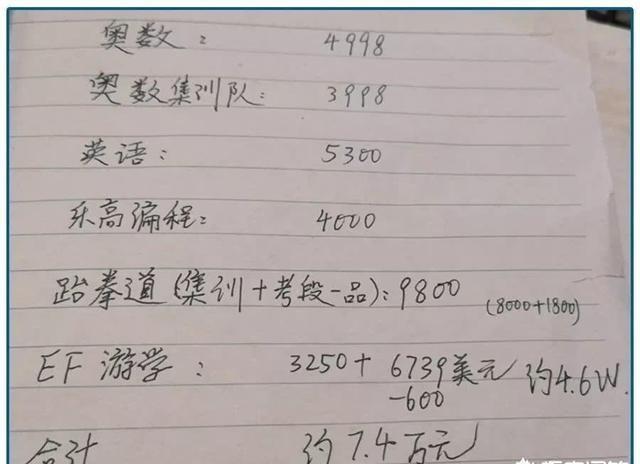 奥数: 4998
奥数集训队: 3998
英语: 5300
乐高编程: 4000
跆拳道(集训+考段一品): 9800 (8000+1800)
EF 游学: 3250+ 6739美元 约4.6W.
-600
合计 约7.4万元